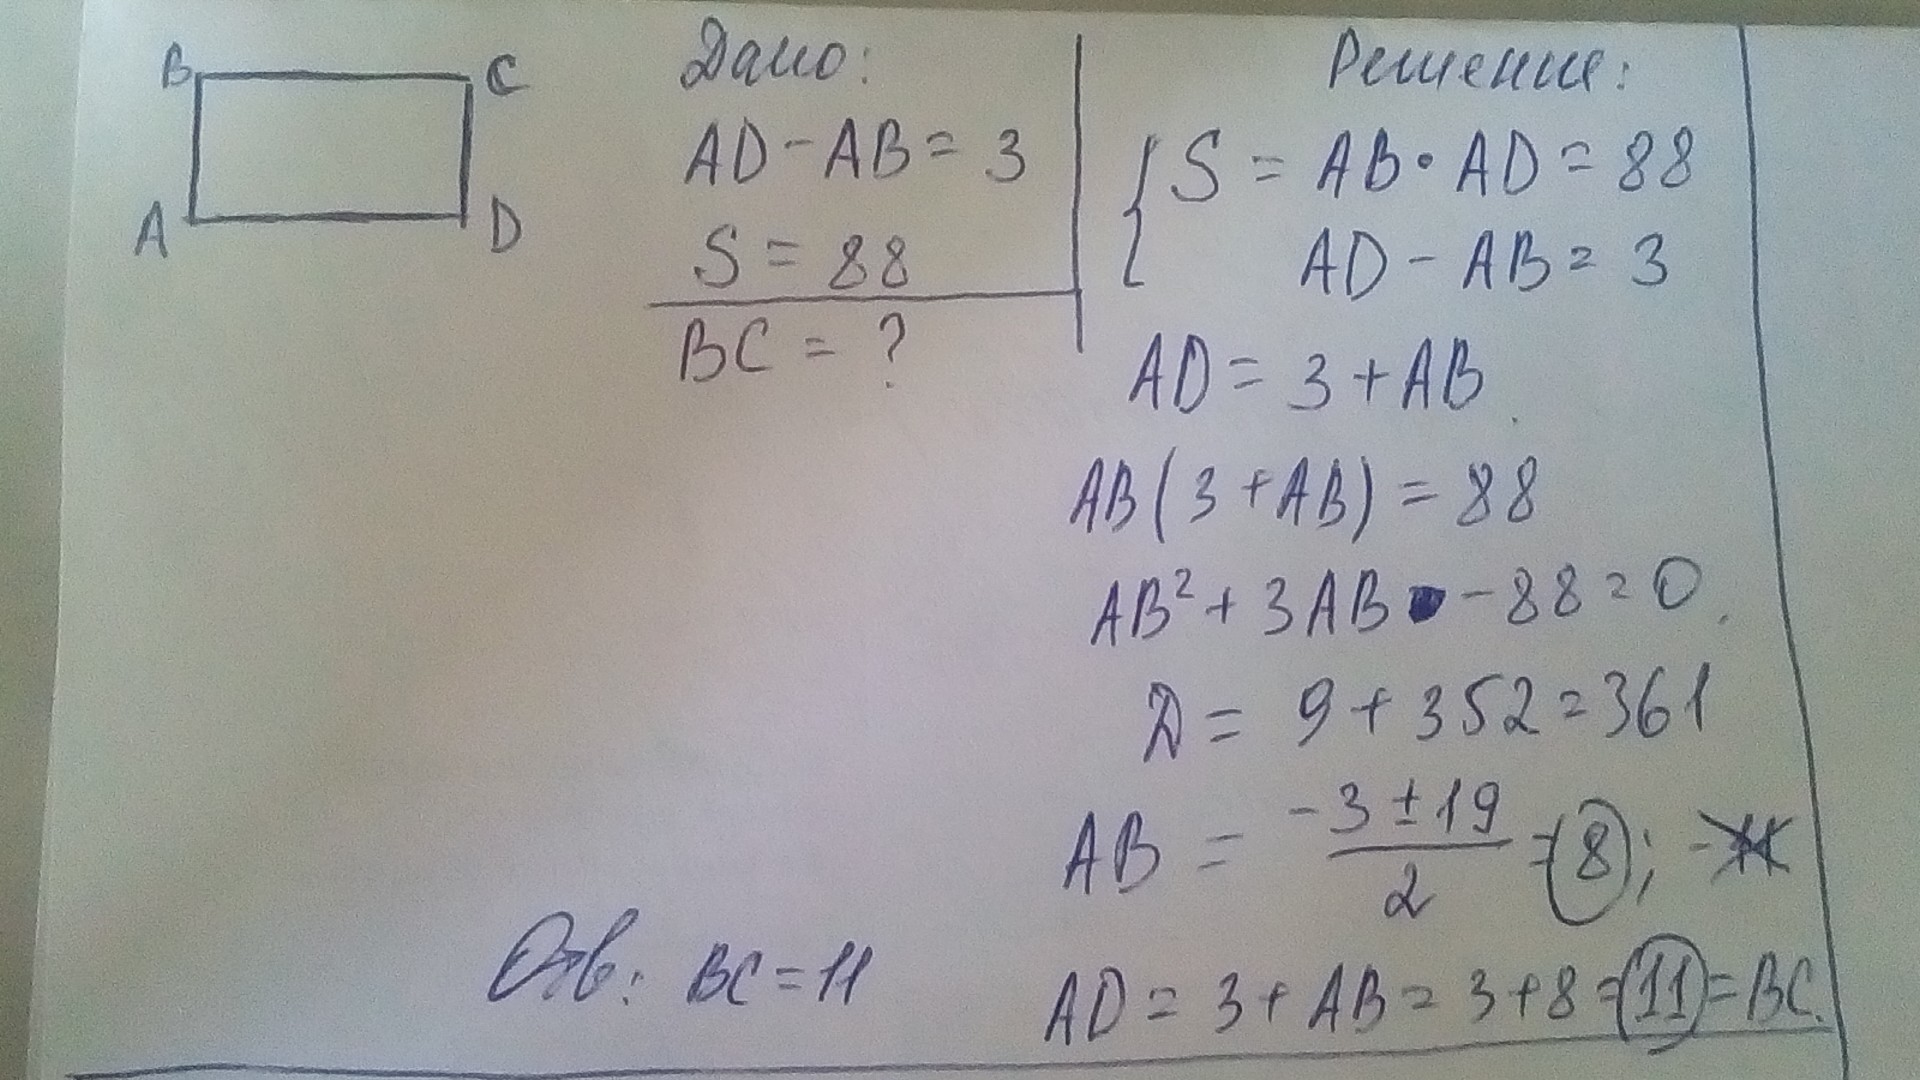 B C
A D
Дано:
AD - AB = 3
S = 88
BC = ?
Решение:
{ S = AB • AD = 88
AD - AB = 3
AD = 3 + AB
AB (3 + AB) = 88
AB² + 3AB - 88 = 0
D = 9 + 352 = 361
AB = (-3 ± 19)/2 = 8; -11
AD = 3 + AB = 3 + 8 = 11 = BC.
Отв: BC = 11